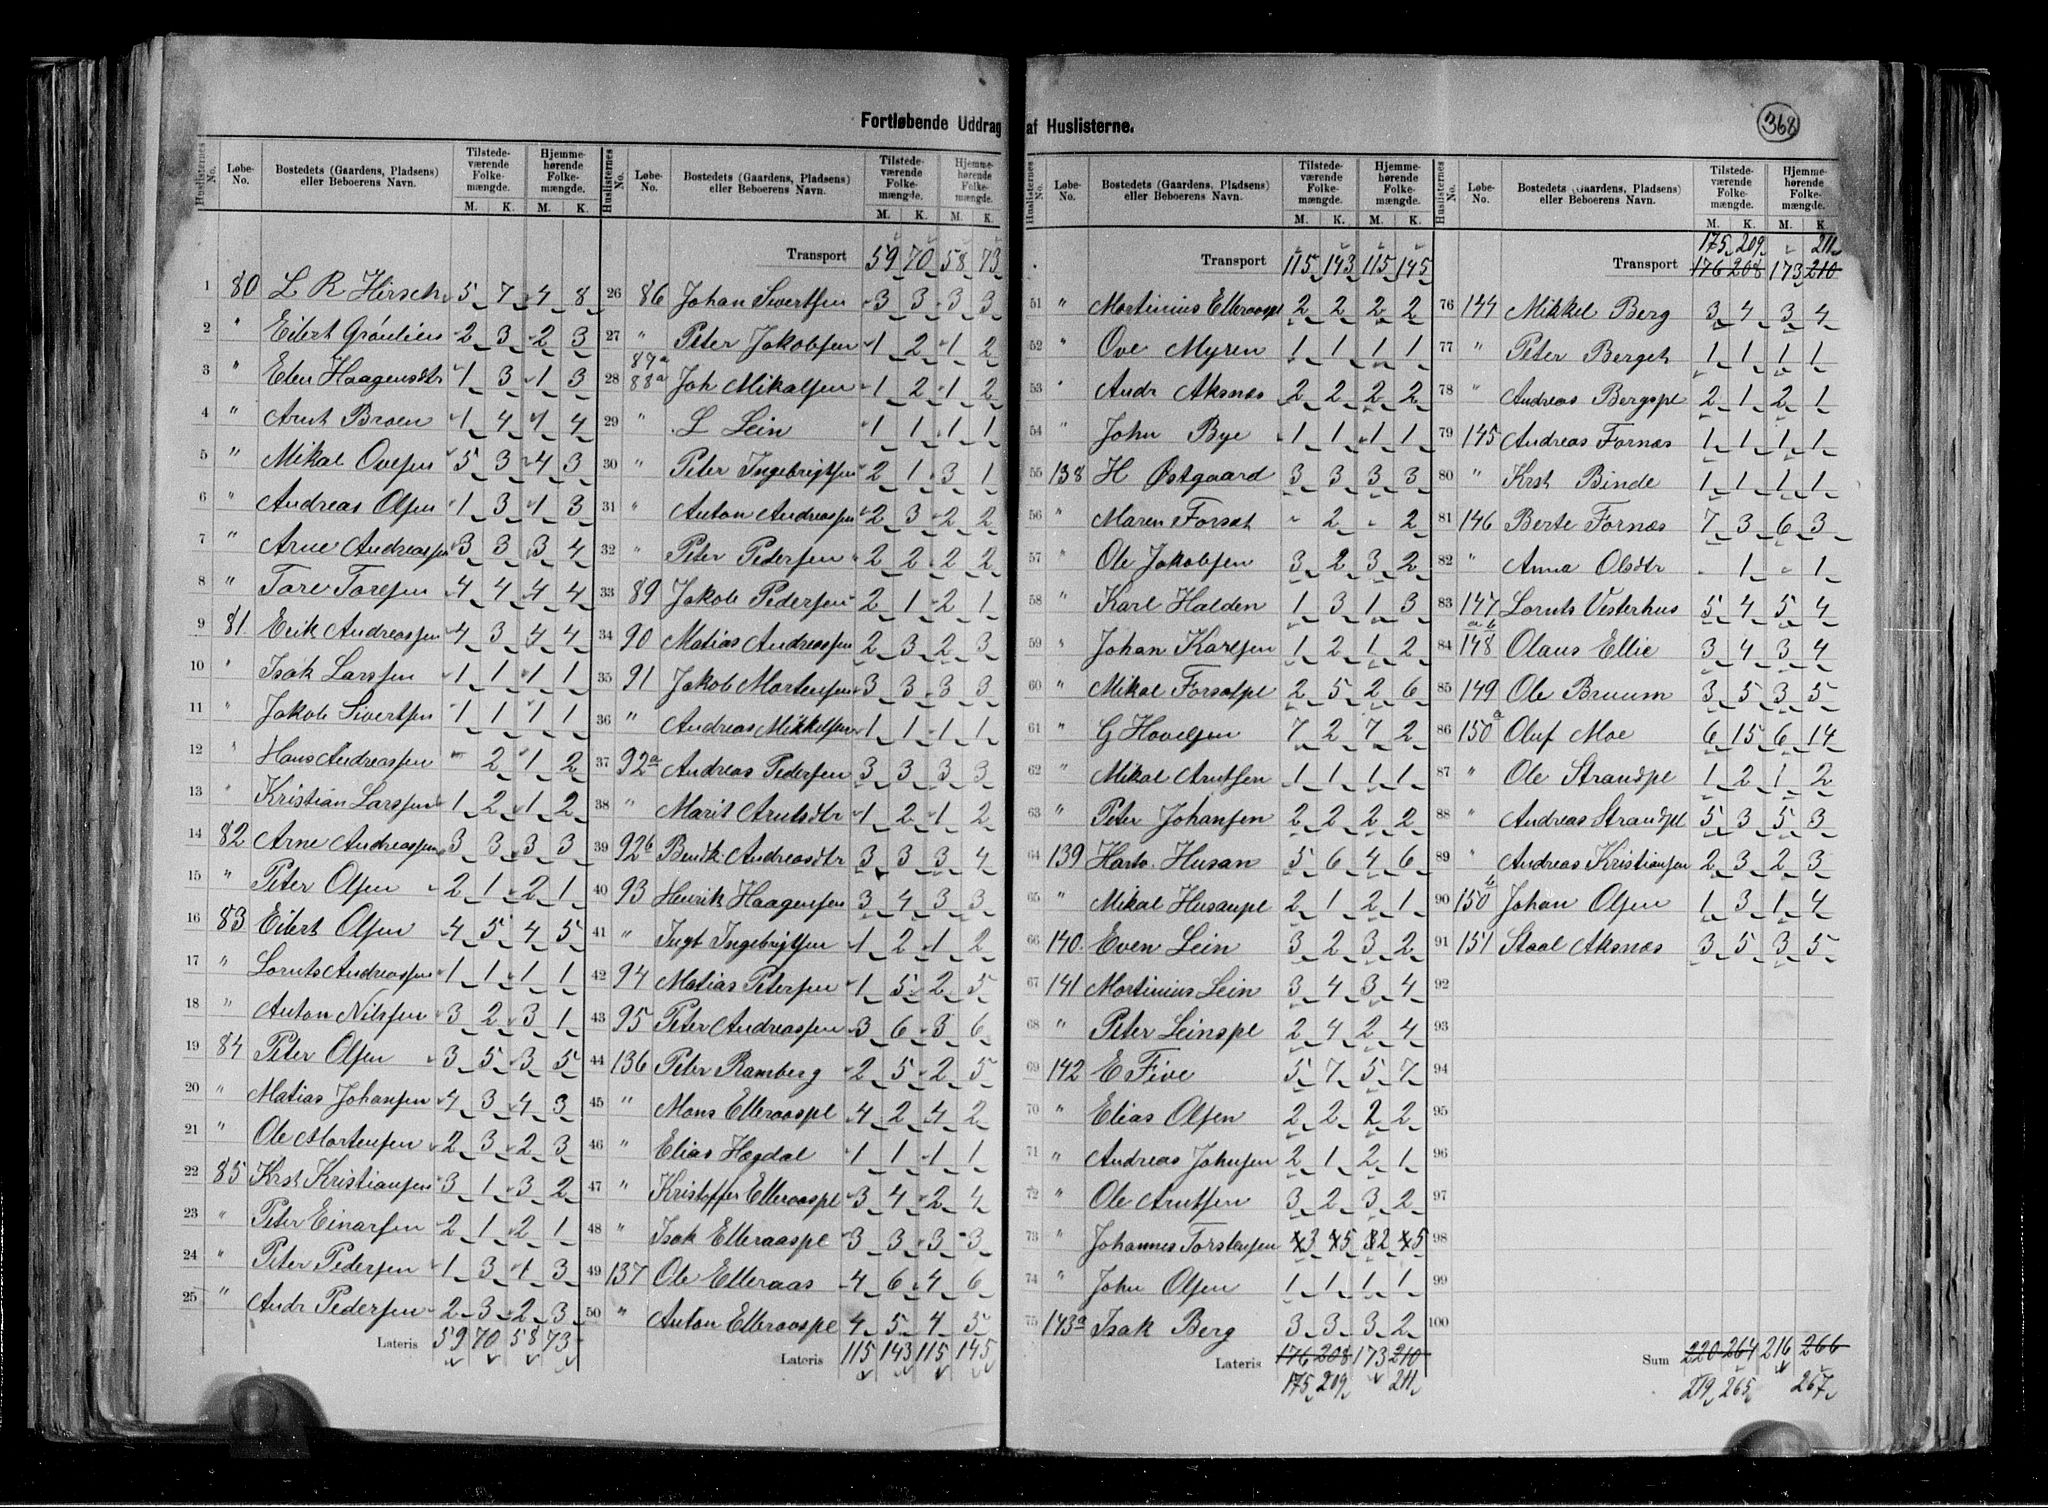 Fortløbende Uddrag af Huslisterne.
368
Huslisternes No. Løbe-No. Bostedets (Gaardens, Pladsens) eller Beboerens Navn. Tilstedeværende Folkemængde. M. K. Hjemmehørende Folkemængde. M. K.
1 80 L R Hirsch 5 7 4 8
2 " Eilert Grønlien 2 3 2 3
3 " Elen Haagensdtr 1 3 1 3
4 " Arnt Broen 1 4 1 4
5 " Mikal Ovesen 5 3 4 3
6 " Andreas Olsen 1 3 1 3
7 " Arne Andreassen 3 3 3 4
8 " Tore Toresen 4 4 4 4
9 81 Erik Andreassen 4 3 4 4
10 " Isak Larssen 1 1 1 1
11 " Jakob Sivertsen 1 1 1 1
12 " Hans Andreassen " 2 1 2
13 " Kristian Larssen 1 2 1 2
14 82 Arne Andreassen 3 3 3 3
15 " Peter Olsen 2 1 2 1
16 83 Eilert Olsen 4 5 4 5
17 " Lornts Andreassen 1 1 1 1
18 " Anton Nilssen 3 2 3 1
19 84 Peter Olsen 3 5 3 5
20 " Matias Johansen 4 3 4 3
21 " Ole Mortensen 2 3 2 3
22 85 Krst Kristiansen 3 1 3 2
23 " Peter Einarsen 2 1 2 1
24 " Peter Pedersen 1 3 1 3
25 " Andr Pedersen 2 3 2 3
Lateris 59 70 58 73
Huslisternes No. Løbe-No. Bostedets (Gaardens, Pladsens) eller Beboerens Navn. Tilstedeværende Folkemængde. M. K. Hjemmehørende Folkemængde. M. K.
Transport 59 70 58 73
26 86 Johan Sivertsen 3 3 3 3
27 " Peter Jakobsen 1 2 1 2
28 87a 88a Joh Mikalsen 1 2 1 2
29 " L Lein 1 1 1 1
30 " Peter Ingebrigtsen 2 1 3 1
31 " Anton Andreassen 2 3 2 2
32 " Peter Pedersen 2 2 2 2
33 89 Jakob Pedersen 2 1 2 1
34 90 Matias Andreassen 2 3 2 3
35 91 Jakob Mortensen 3 3 3 3
36 " Andreas Mikkelsen 1 1 1 1
37 92a Andreas Pedersen 3 3 3 3
38 " Marit Arntsdtr 1 2 1 2
39 92b Berit Andreasdtr 3 3 3 4
40 93 Henrik Haagensen 3 4 3 3
41 " Ingt Ingebrigtsen 1 2 1 2
42 94 Matias Petersen 1 5 2 5
43 95 Peter Andreassen 3 6 3 6
44 136 Peter Ramberg 2 5 2 5
45 " Mons Elleraaspl 4 2 4 2
46 " Elias Hegdal 1 1 1 1
47 " Kristoffer Elleraaspl 3 4 2 4
48 " Isak Elleraaspl 3 3 3 3
49 137 Ole Elleraas 4 6 4 6
50 " Anton Elleraaspl 4 5 4 5
Lateris 115 143 115 145
Huslisternes No. Løbe-No. Bostedets (Gaardens, Pladsens) eller Beboerens Navn. Tilstedeværende Folkemængde. M. K. Hjemmehørende Folkemængde. M. K.
Transport 115 143 115 145
51 " Mortinius Elleraaspl 2 2 2 2
52 " Ove Myren 1 1 1 1
53 " Andr Aksnæs 2 2 2 2
54 " John Bye 1 1 1 1
55 138 H Østgaard 3 3 3 3
56 " Maren Forsæt " 2 " 2
57 " Ole Jakobsen 3 2 3 2
58 " Karl Halden 1 3 1 3
59 " Johan Karlsen 1 2 1 2
60 " Mikal Forsætpl 2 5 2 6
61 " G Hovelsen 7 2 7 2
62 " Mikal Arntsen 1 1 1 1
63 " Peter Johansen 2 2 2 2
64 139 Hartv. Husan 5 6 4 6
65 " Mikal Husanpl 2 1 2 1
66 140 Even Lein 3 2 3 2
67 141 Mortinius Lein 3 4 3 4
68 " Peter Leinspl 2 4 2 4
69 142 E Five 5 7 5 7
70 " Elias Olsen 2 2 2 2
71 " Andreas Johnsen 2 1 2 1
72 " Ole Arntsen 3 2 3 2
73 " Johannes Torstensen 3 5 2 5
74 " John Olsen 1 1 1 1
75 143a Isak Berg 3 3 3 2
Lateris 176 208 173 210
175 209 211
Huslisternes No. Løbe-No. Bostedets (Gaardens, Pladsens) eller Beboerens Navn. Tilstedeværende Folkemængde. M. K. Hjemmehørende Folkemængde. M. K.
175 209 " 211
Transport 176 208 173 210
76 144 Mikkel Berg 3 4 3 4
77 " Peter Berget 1 1 1 1
78 " Andreas Bergspl 2 1 2 1
79 145 Andreas Fornæs 1 1 1 1
80 " Krst Binde 1 1 1 1
81 146 Berte Fornæs 7 3 6 3
82 " Anna Olsdtr " 1 " 1
83 147 Lornts Vesterhus 5 4 5 4
84 ab 148 Olaus Ellie 3 4 3 4
85 149 Ole Bruum 3 5 3 5
86 150a Oluf Moe 6 15 6 14
87 " Ole Strandpl 1 2 1 2
88 " Andreas Strandpl 5 3 5 3
89 " Andreas Kristiansen 2 3 2 3
90 150b Johan Olsen 1 3 1 4
91 151 Staal Aksnæs 3 5 3 5
92
93
94
95
96
97
98
99
100
Sum 220 264 216 266
219 265 267